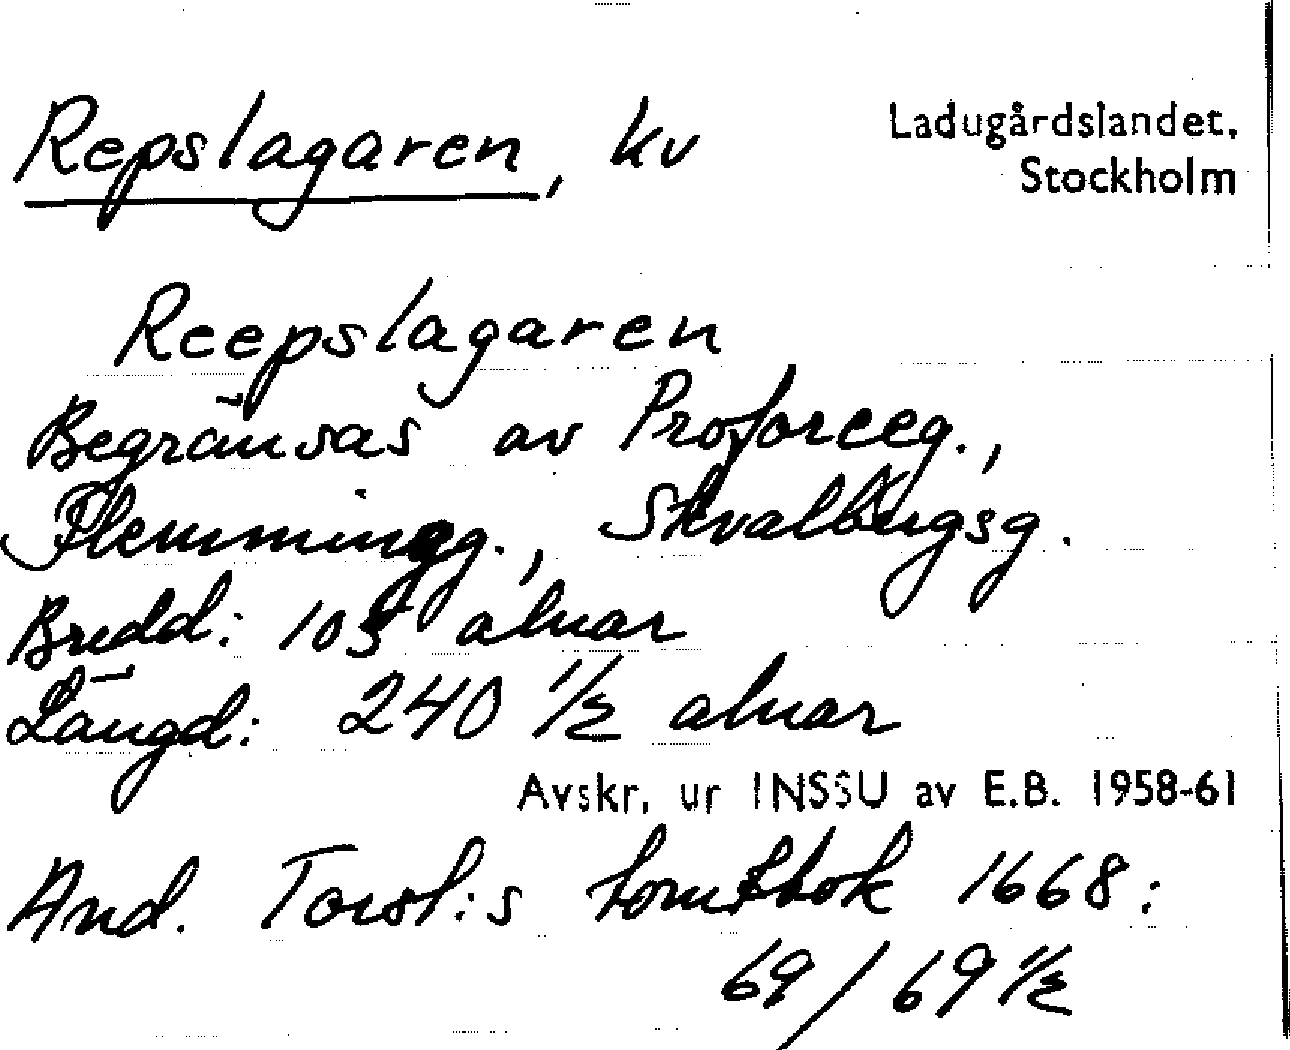 Repslagaren, kv
Ladugårdslandet.
Stockholm
Reepslagaren
Begränsas av Proforceeg.,
Flemmingg., Skvalbergsg.
Bredd: 105 alnar
Längd: 240 1/2 alnar
Avskr. ur INSSU av E.B. 1958-61
And. Torst:s tomtbok 1668:
69/69 1/2